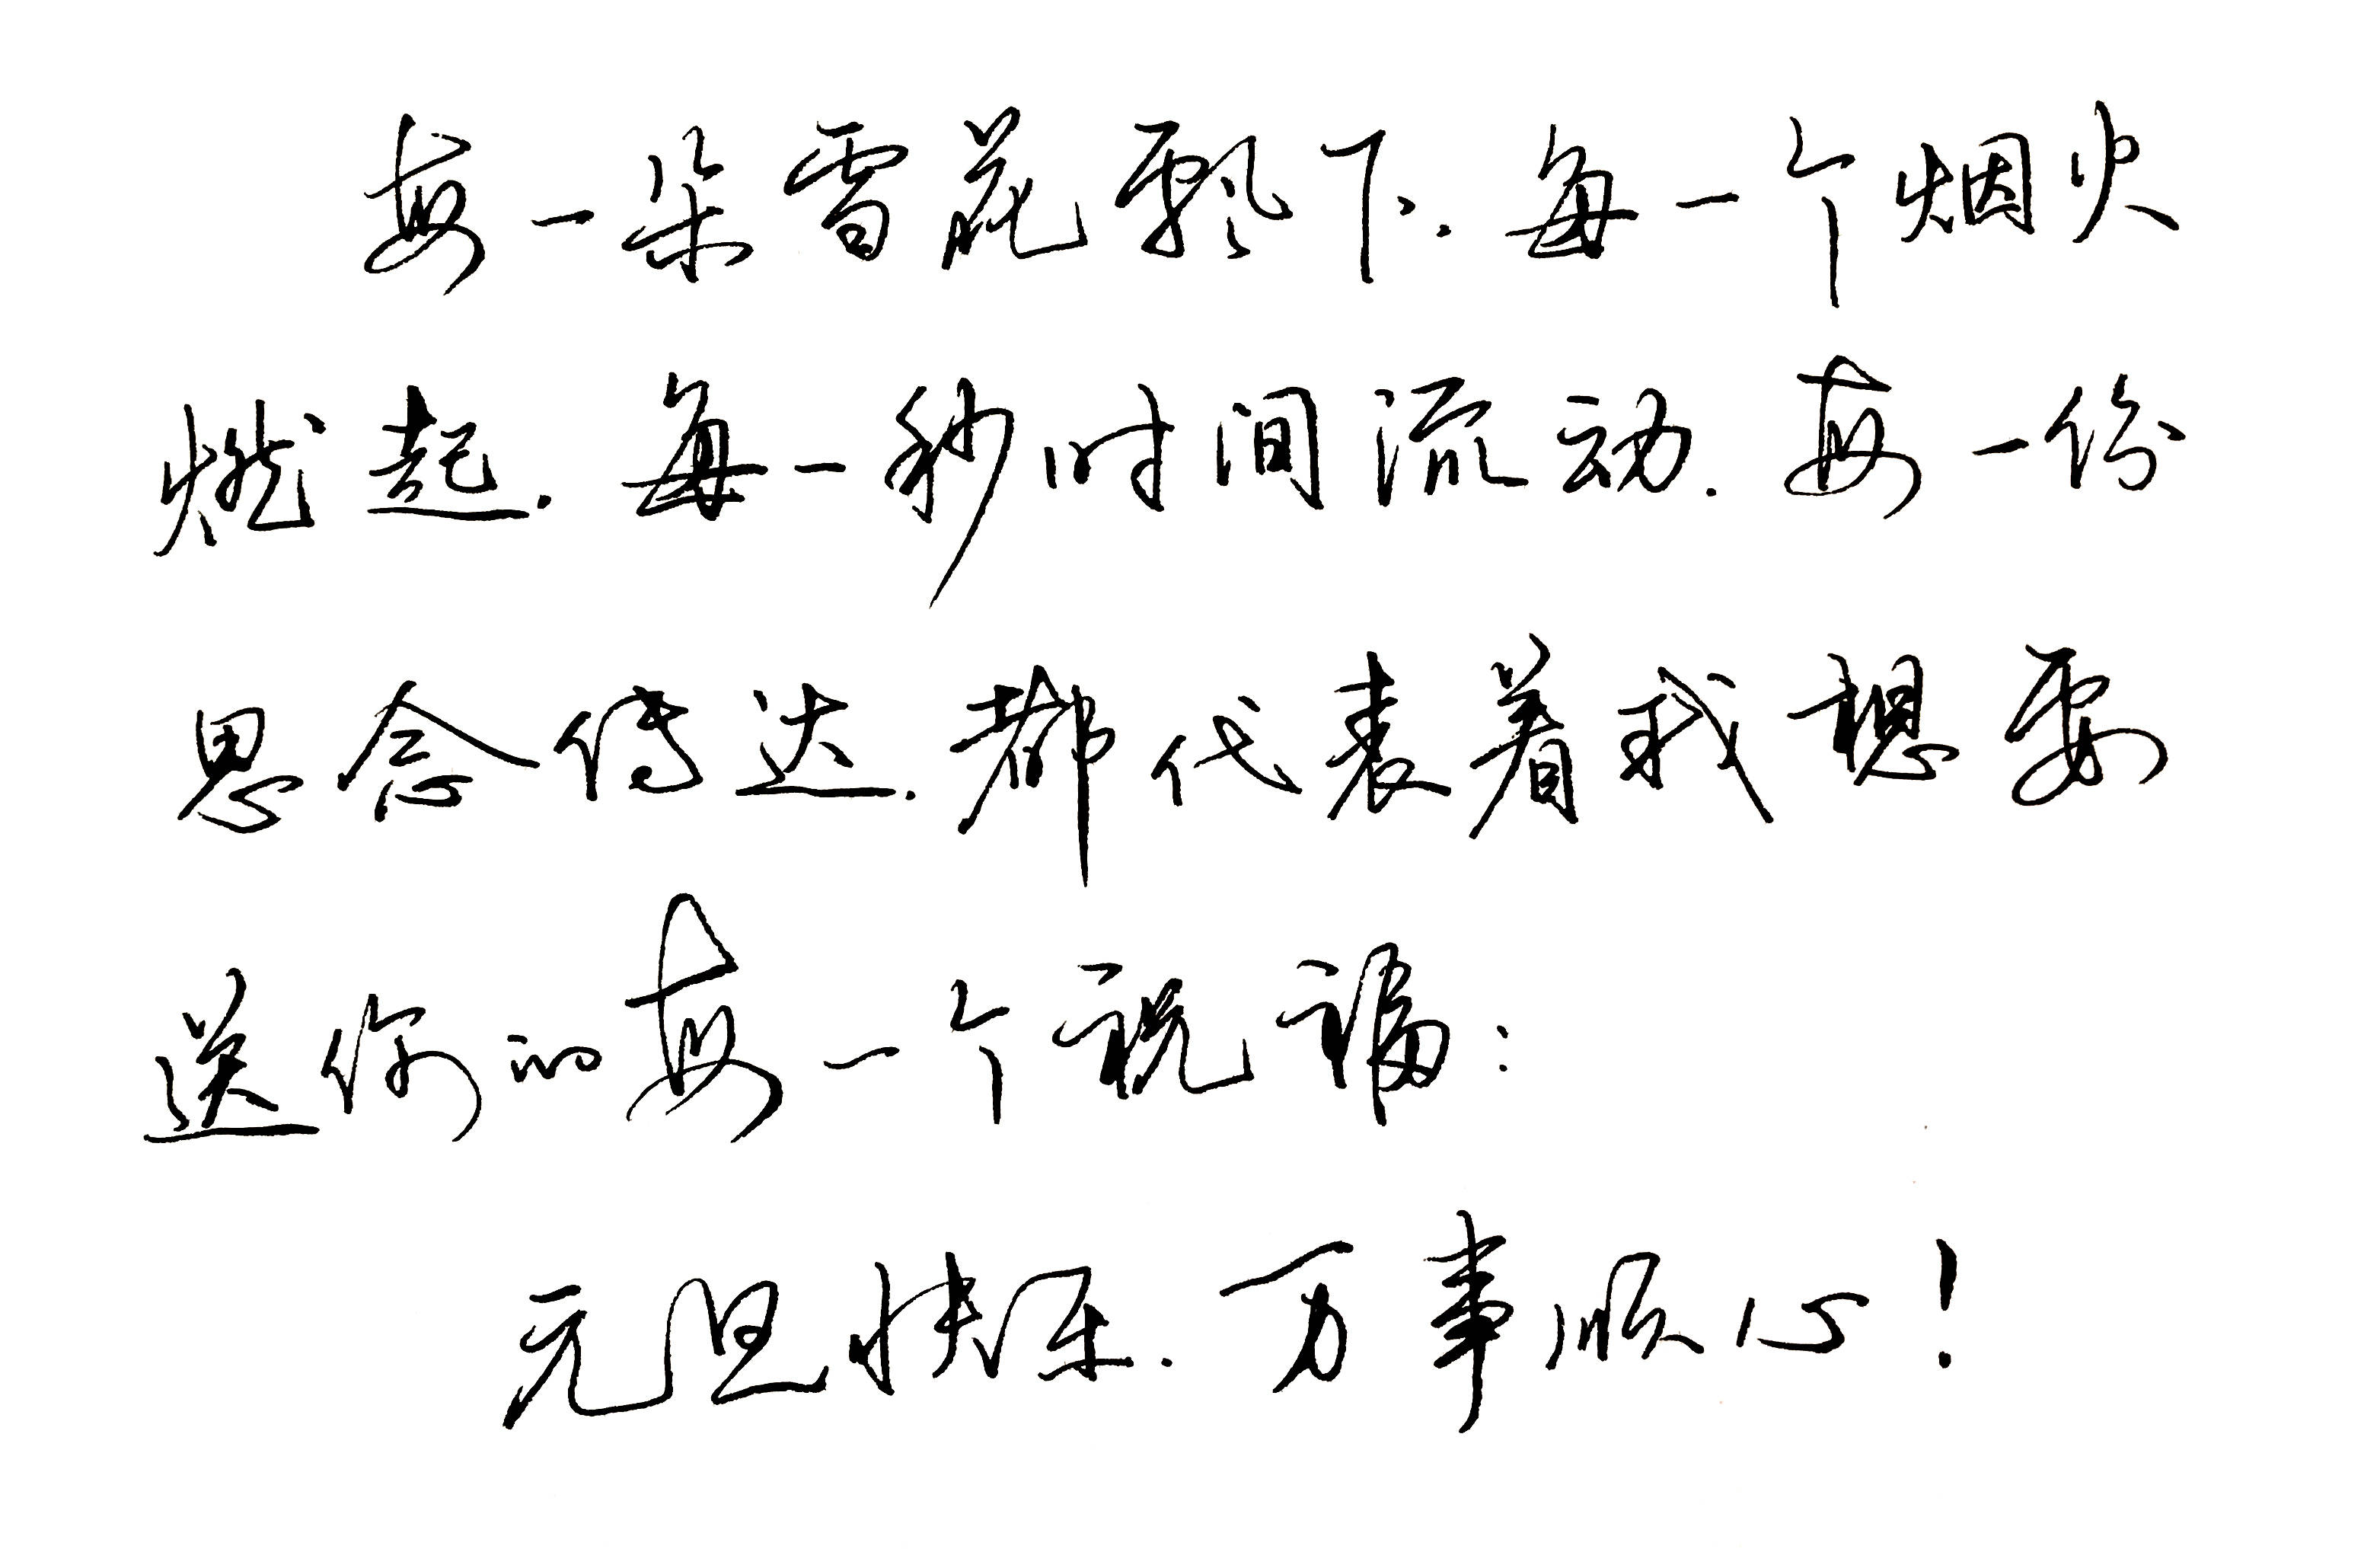 每一朵雪花飘下.每一个烟火
燃起.每一秒时间流动.每一份
思念传达.都代表着我想要
送你的每一个祝福:
元旦快乐.万事顺心!